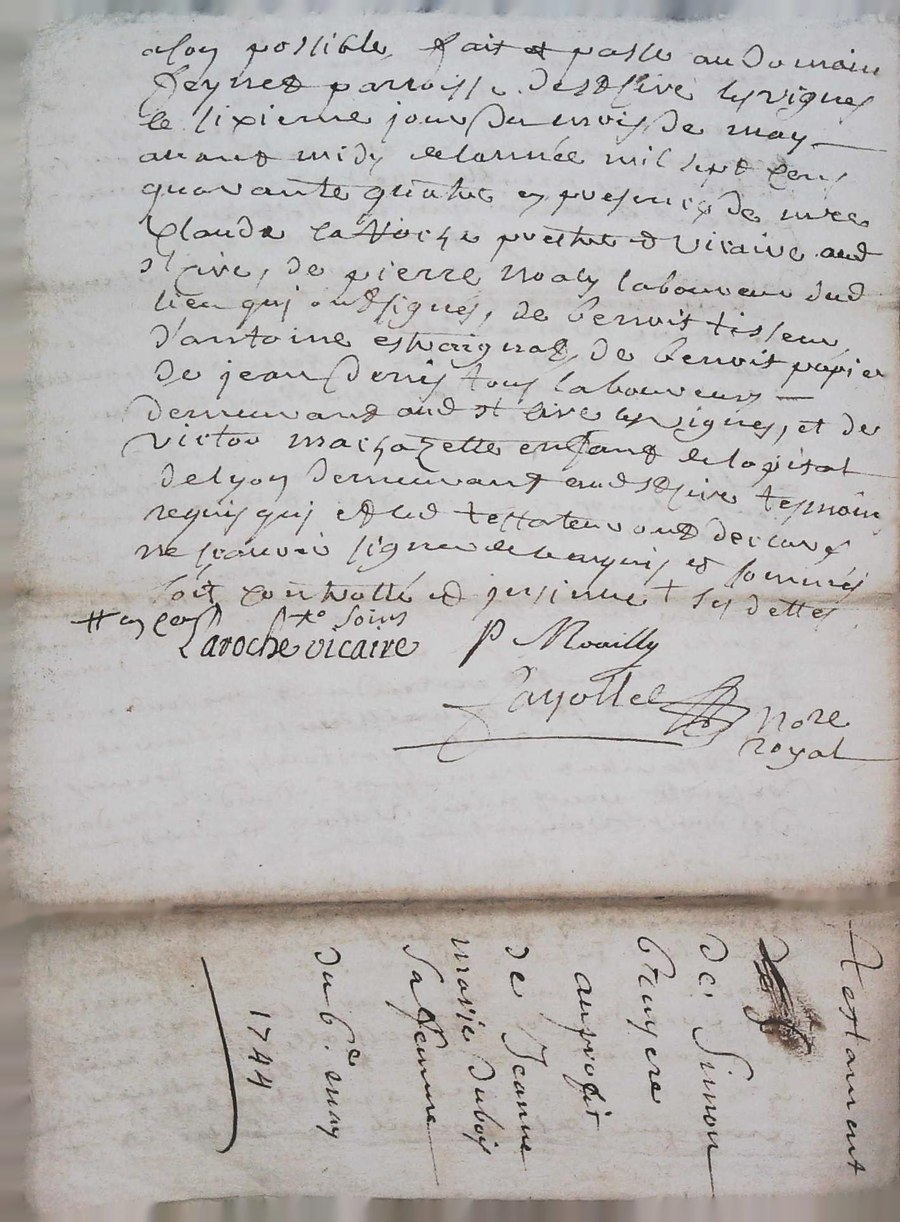 a son possible, fait et passé au domaine
Jeynet parroisse de St sire les vignes
le sixieme jour du mois de may
avant midy de lannée mil sept cens
quarante quatre en presence de mre
Claude la Roche prestre et vicaire aud
st sire, de pierre Noaly laboureur dud
lieu qui ont signés, de benoist tisseur
d'antoine de benoist papier
de jean Denis tous laboureurs
demeurant aud st sire les vignes, et de
victor enfant de lopital
de lyon demeurant aud st sire tesmoins
requis qui et led testateur ont declaré
ne scavoir signer de ce enquis et sommés
soit controllé et jnsinué + ses dettes
# en cens sto soins
Laroche vicaire P Noailly
Payollel nore
royal
Testament
de Simon
bruyere
au profit
de Jeanne
marie dubois
sa femme
du 6e may
1744